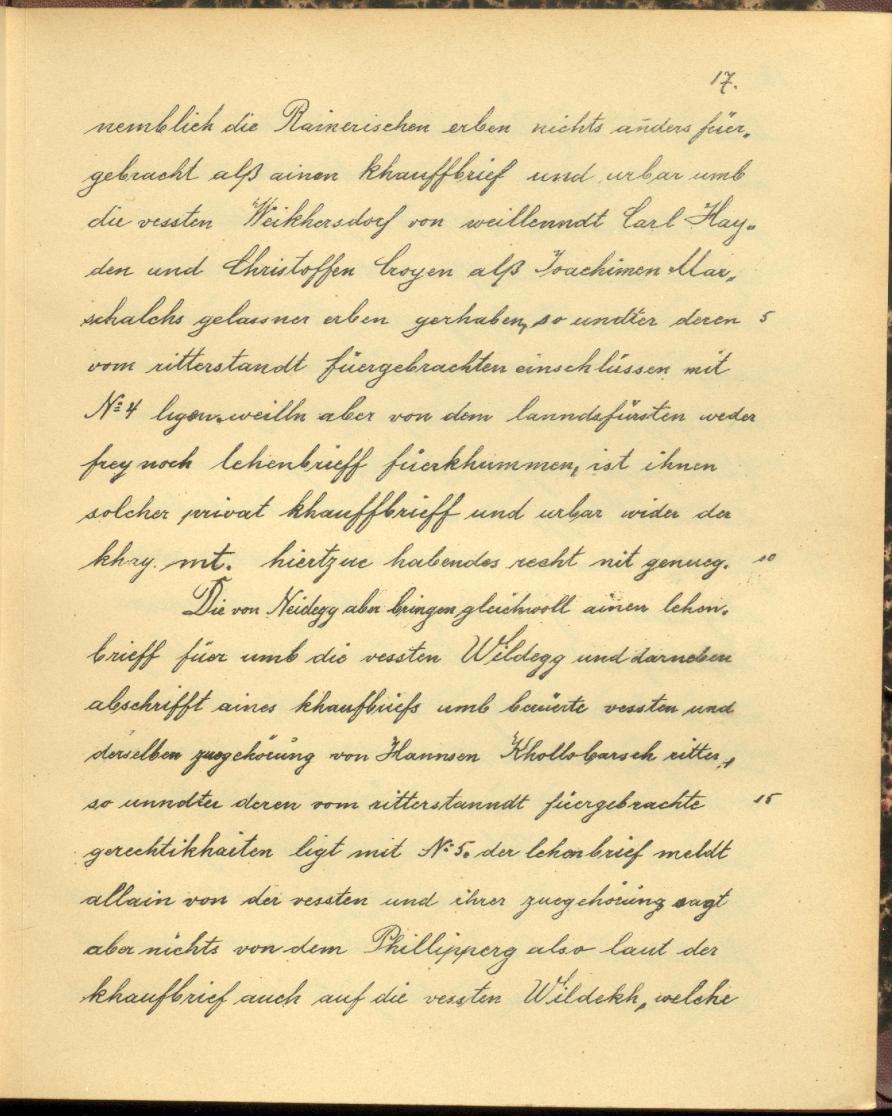 17.
nemblich die Rainerischen erben nichts anders füer„
gebracht alß ainen khauffbrief und urbar umb
die vessten Weikhersdorf von weillenndt Carl Hay„
den und Christoffen Croyen alß Joachimen Mar„
schalchs gelassner erben gerhaben, so undter deren 5
vom ritterstandt füergebrachten einschlüssen mit
No 4 ligen. weilln aber von dem lanndsfürsten weder
frey noch lehenbrieff füerkhummen, ist ihnen
solcher privat khauffbrieff und urbar wider der
khay. mt. hiertzue habendes recht nit genueg. 10
Die von Neidegg aber bringen gleichwoll ainen lehen„
brieff füer umb die vessten Wildegg und darneben
abschrifft aines khaufbriefs umb berüerte vessten und
derselben zuegehörüng von Hannsen Khollobarsch ritter,
so unndter deren vom ritterstanndt füergebrachte 15
gerechtikhaiten ligt mit No 5. der lehenbrief meldt
allain von der vessten und ihrer zuegehörüng sagt
aber nichts von dem Phillipperg also laut der
khaufbrief auch auf die vessten Wildekh, welche